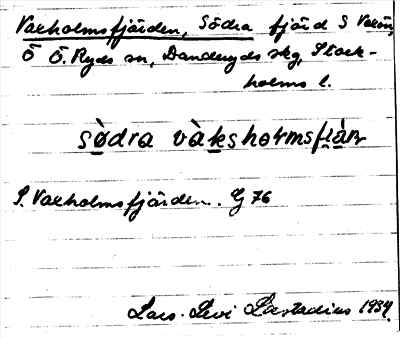 Vaxholmsfjärden, Södra fjärd S Vaxön,
Ö Ö. Ryds sn, Danderyds skg, Stock-
holms l.
sòdra vàksholmsfjàɳ
S. Vaxholmsfjärden. G 76
Lars-Levi Læstadius 1934.